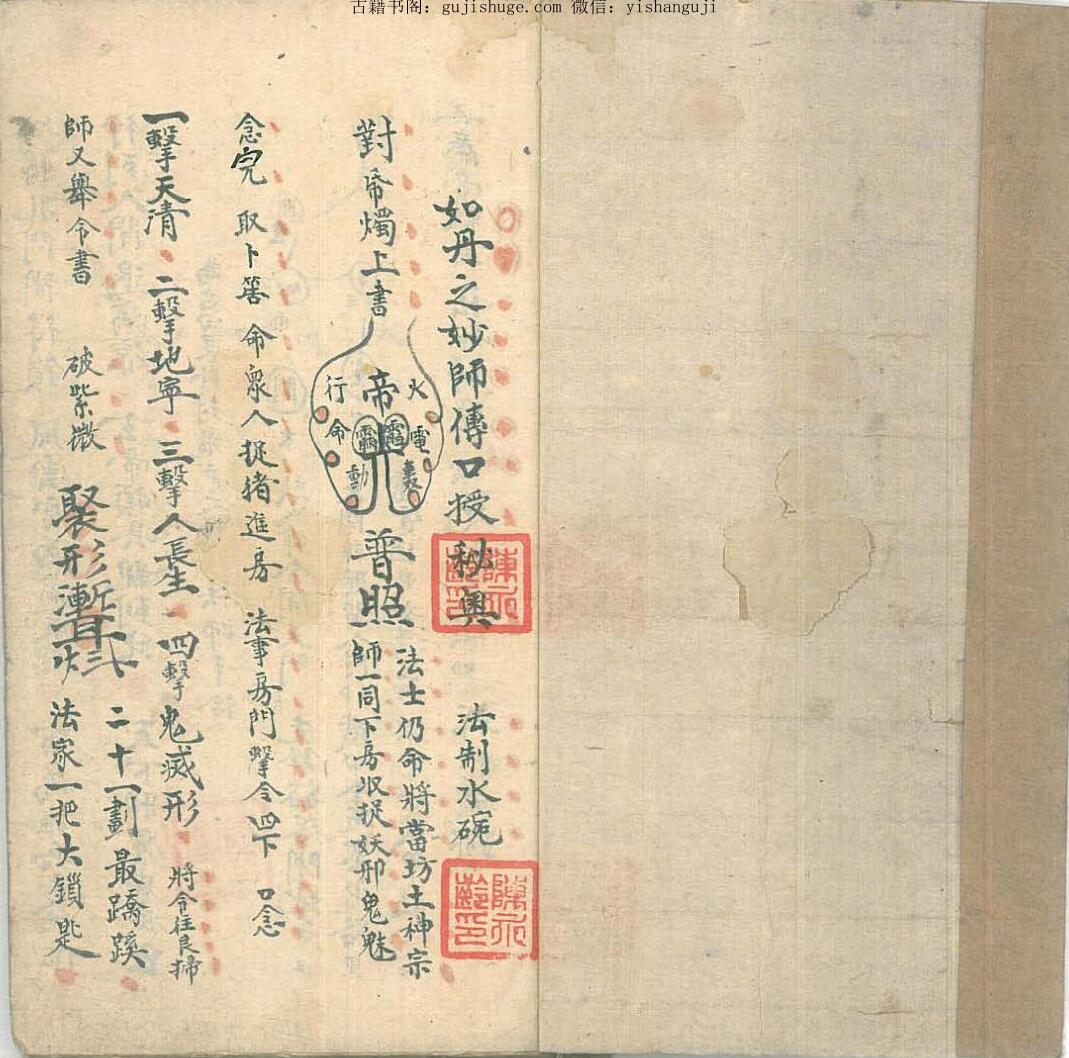 古籍书阁：gujishuge.com 微信：yishanguji
如丹之妙師傳口授秘奧 法制水碗
對帝燭上書
帝
火電
行命動
普照
法士仍命將當坊土神宗
師一同下房收捉妖邪鬼魅
念完 取卜筶 命眾人捉猪進房 法事房門擊令四下 口念
一擊天清 二擊地寧 三擊人長生 四擊鬼滅形
將令往艮掃
師又舉令書 破紫微 聚形
二十一劃最蹺蹊
法家一把大鎖匙